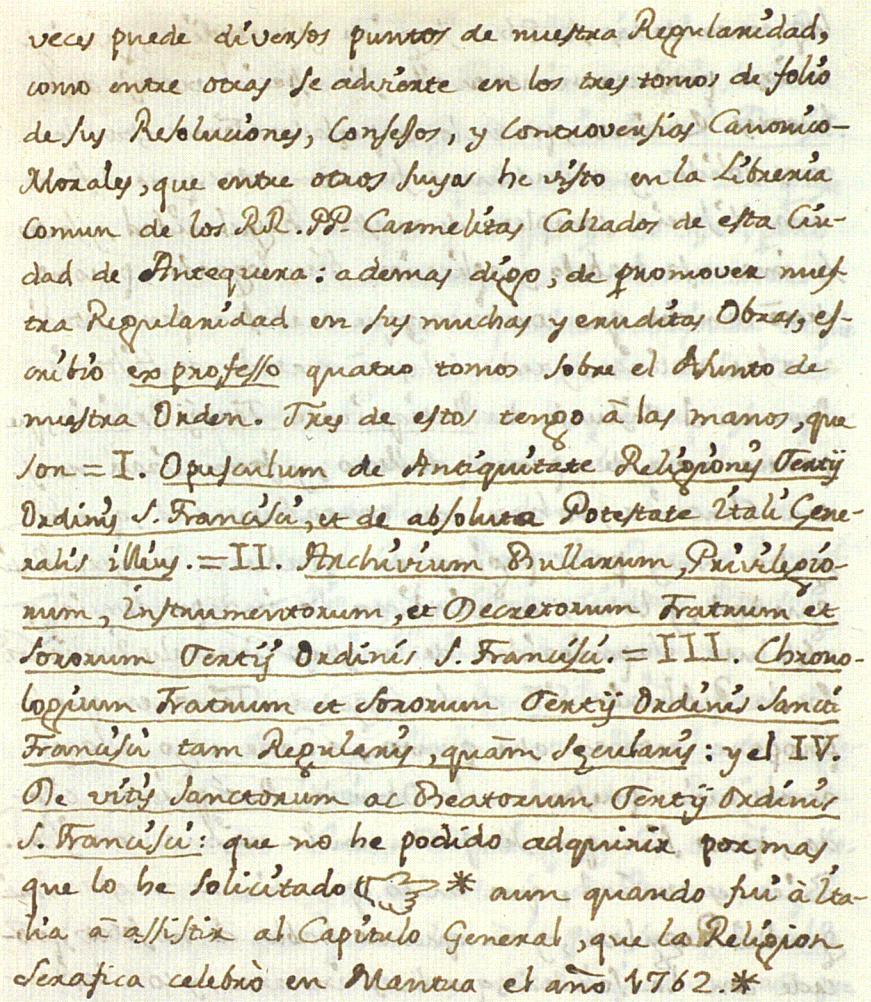 veces puede diversos puntos de nuestra Regularidad,
como entre otras se advierte en los tres tomos de folio
de sus Resoluciones, Consejos, y Controversias Canonico-
Morales, que entre otros suyos he visto en la Libreria
Comun de los RR. PP. Carmelitas Calzados de esta Ciu-
dad de Antequera: ademas digo, de promover nues-
tra Regularidad en sus muchas y eruditas Obras, es-
cribio ex professo quatro tomos sobre el Asunto de
nuestra Orden. Tres de estos tengo à las manos, que
son = I. Opusculum de Antiquitate Religionis Tertij
Ordinis S. Francisci, et de absoluta Potestate Vitali Gene-
ralis illius. = II. Archivium Bullarum, Privilegio-
rum, Instrumentorum, et Decretorum Fratrum et
Sororum Tertij Ordinis S. Francisci. = III. Chrono-
logium Fratrum et Sororum Tertij Ordinis Sancti
Francisci tam Regularis, quàm Sęcularis: y el IV.
De vitis Sanctorum ac Beatorum Tertij Ordinis
S. Francisci: que no he podido adquirir por mas
que lo he solicitado ☞ * aun quando fui à Ita-
lia à assistir al Capitulo General, que la Religion
Serafica celebrò en Mantua el año 1762. *